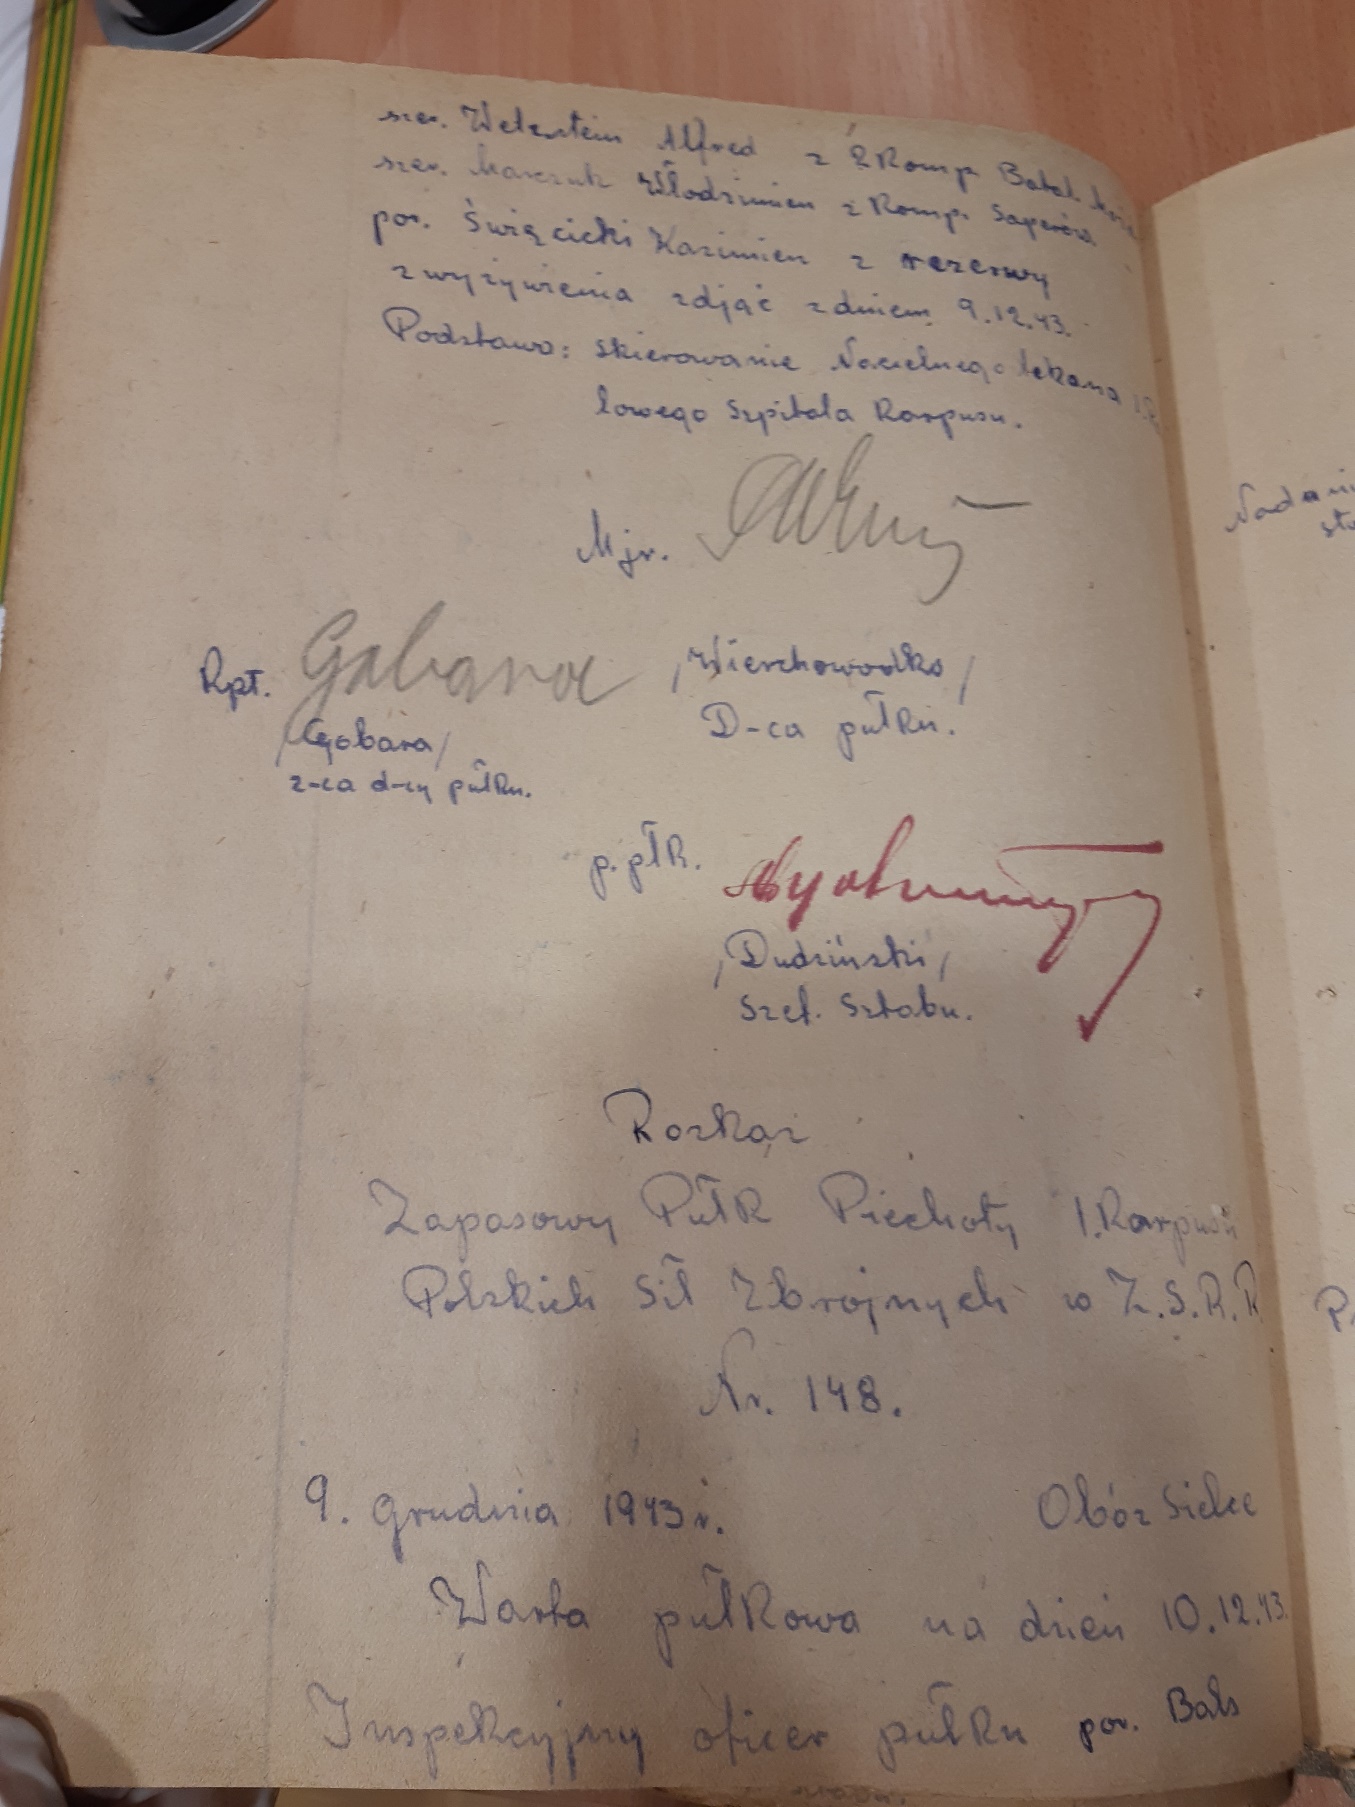 szer. Welzstein Alfred z 2 Komp. Batal.
szer. Marczuk Włodzimierz z Komp. Saperów
por. Święcicki Kazimierz z rezerwy
z wyżywienia zdjąć z dniem 9.12.43.
Podstawa: skierowanie Naczelnego lekarza
lowego Szpitala Korpusu.
Mjr.
Kpt. Gabara /Wierzchowodko/
/Gabara/ D-ca pułku.
z-ca d-cy pułku.
p. płk.
/Dudziński/
Szef. Sztabu.
Rozkaz
Zapasowy Pułk Piechoty 1. Korpusu
Polskich Sił Zbrojnych w Z.S.R.R
Nr. 148.
9. grudnia 1943 r. Obóz Sielce
Warta pułkowa na dzień 10.12.43.
Inspekcyjny oficer pułku por. Bals